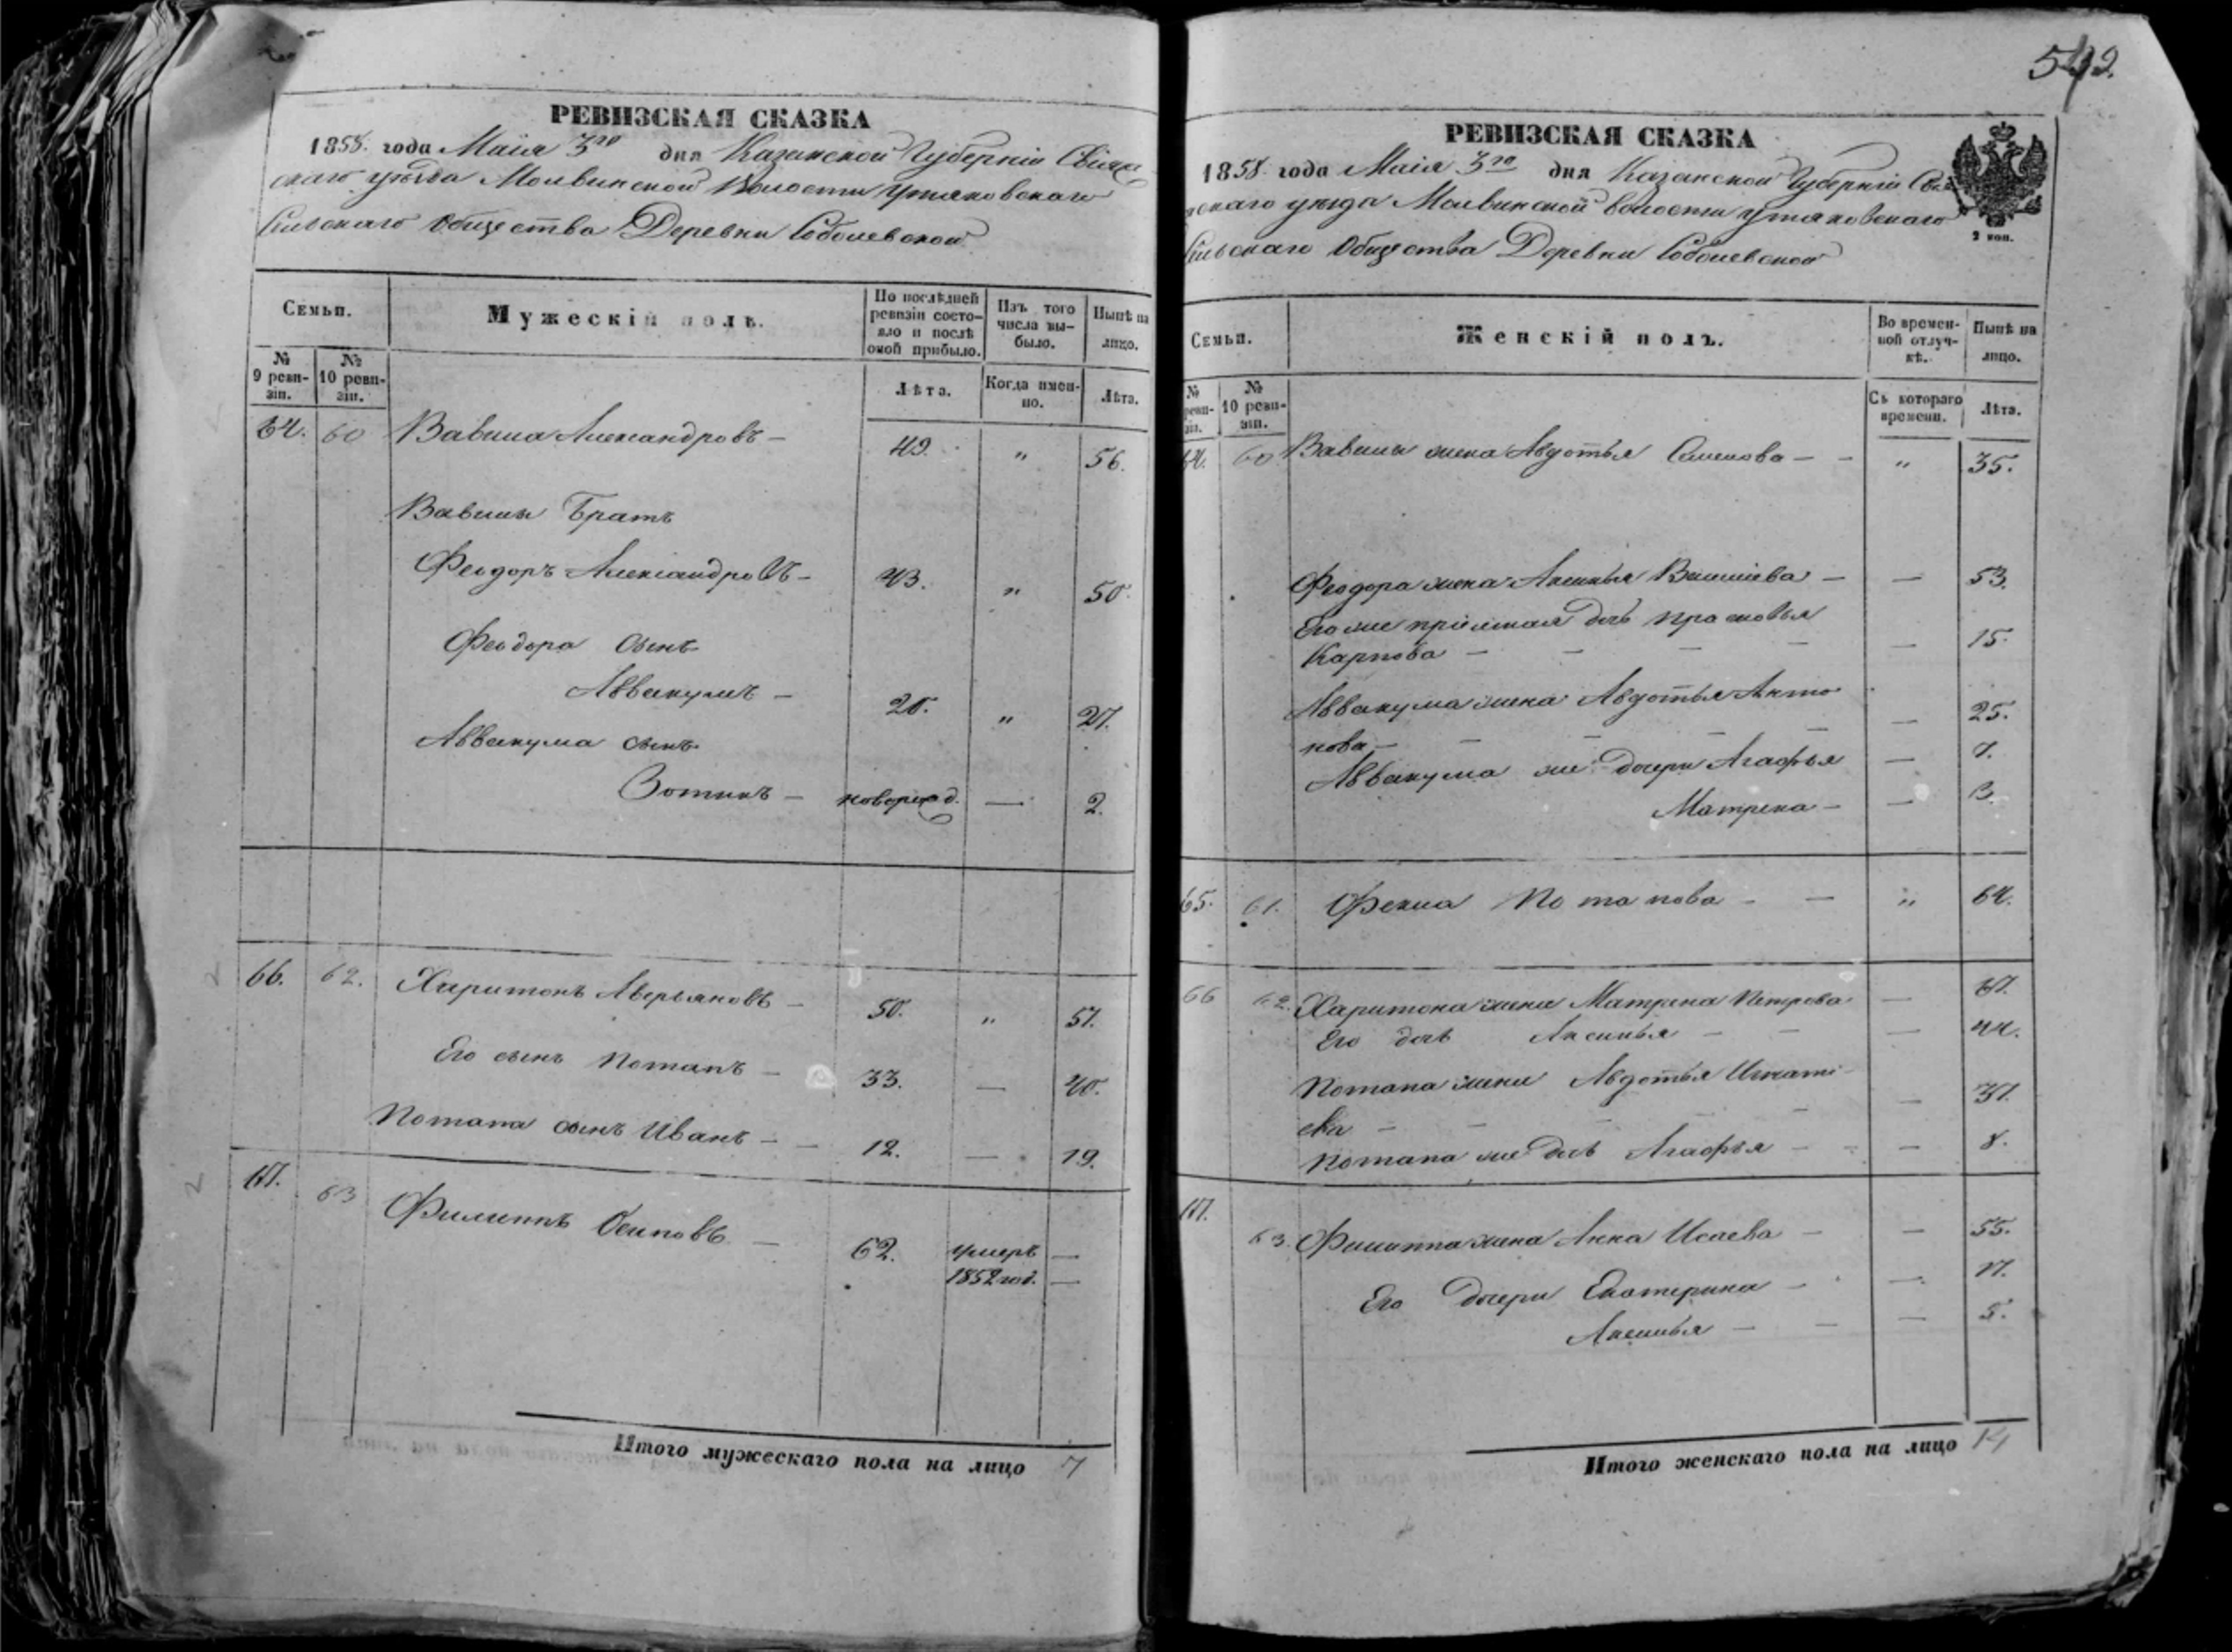 542.
РЕВИЗСКАЯ СКАЗКА
1858. года Маія 3го дня Казанской Губерніи Свіяж
скаго уѣзда Молвинской Волости Утяковскаго
Сельскаго Общества Деревни Соболевской
Семьи.
Мужескій полъ.
По послѣдней ревизіи состояло и послѣ оной прибыло.
Изъ того числа выбыло.
Нынѣ на лицо.
№ 9 ревизіи.
№ 10 ревизіи.
Лѣта.
Когда именно.
Лѣта.
64. 60 Вавила Александровъ – 49. " 56.
Вавилы Братъ
Феодоръ Александровъ – 43. " 50.
Феодора сынъ
Аввакумъ – 20. " 27.
Аввакума сынъ
Зотикъ – новорожд. — 2.
66. 62. Харитонъ Аверьяновъ – 50. " 57.
Его сынъ Потапъ – 33. — 40.
Потапа сынъ Иванъ – – 12. — 19.
67. 63 Филиппъ Осиповъ – 62. умеръ —
1852 год. —
Итого мужескаго пола на лицо 7
РЕВИЗСКАЯ СКАЗКА
1858 года Маія 3го дня Казанской Губерніи Свія
скаго уѣзда Молвинской волости Утяковскаго
Сельскаго Общества Деревни Соболевской
2 коп.
Семьи.
Женскій полъ.
Во временной отлучкѣ.
Нынѣ на лицо.
№ реви- зіи.
№ 10 ревизіи.
Съ котораго времени.
Лѣта.
64. 60 Вавилы жена Авдотья Семенова – – " 35.
Феодора жена Аксинья Васильева – — 53.
Его же пріемная дочь Прасковья
Карпова – – – – — 15.
Аввакума жена Авдотья Анто
нова – – – – — 25.
Аввакума же дочери Агафья — 7.
Матрена – — 3.
65. 61. Фекла Потапова – – " 64.
66 62. Харитона жена Матрена Петрова — 67.
Его дочь Аксинья – – — 44.
Потапа жена Авдотья Игнать
ева – – – – — 37.
Потапа же дочь Агафья – – — 8.
67. 63. Филиппа жена Анна Исаева – — 55.
Его дочери Екатерина – — 17.
Аксинья – – — 5.
Итого женскаго пола на лицо 14